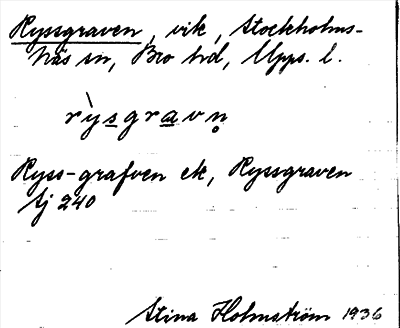 Ryssgraven, vik, Stockholms-
Näs sn, Bro hd, Upps. l.
rỳsgravn̥
Ryss-grafven ek, Ryssgraven
Sj 240
Stina Holmström 1936